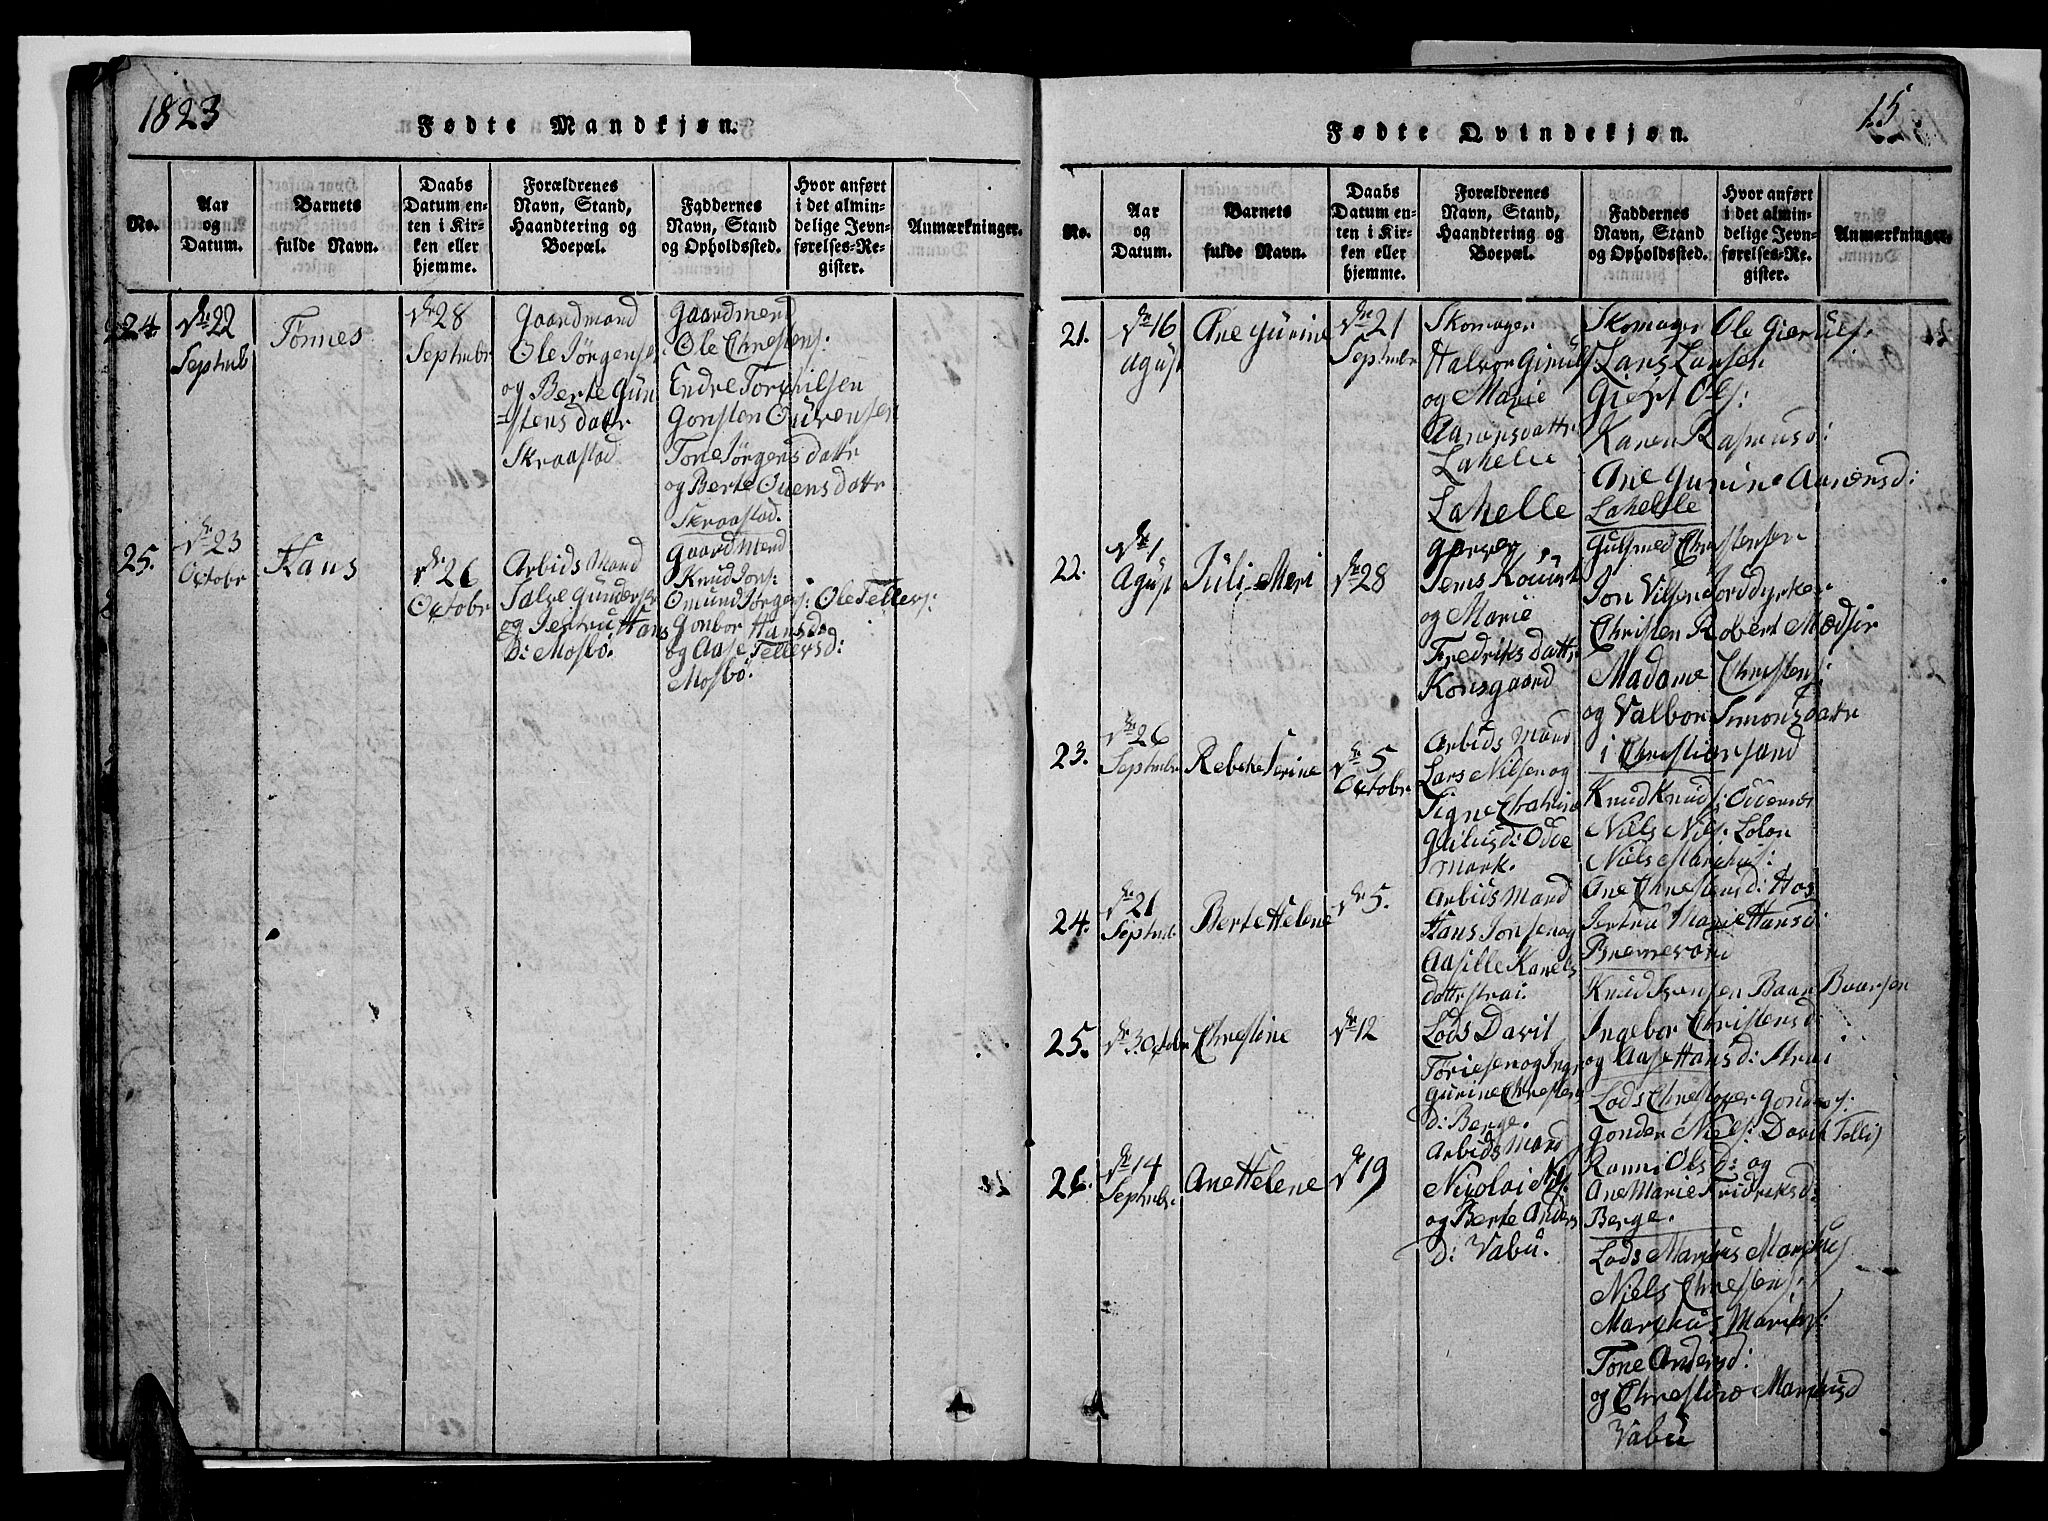 1823
Fødte Mandkjøn.
No.
Aar
og
Datum.
Barnets
fulde Navn.
Daabs
Datum en-
ten i Kir-
ken eller
hjemme.
Forældrenes
Navn, Stand,
Haandtering og
Boepæl.
Faddernes
Navn, Stand
og Opholdssted.
Hvor anført
i det almin-
delige Jevn-
førelses-Re-
gister.
Anmærkninger.
24.
dn 22
Septmb
Tönnes
dn 28
Septmbr
Gaardmand
Ole Jörgens
og Berte Gun
stens dattr
Skraastad
Gaardmend
Ole Chrestens:
Endre Torkilsen
Gonsten
Tone Jörgens dattr
og Berte Ovens dattr
Skraastad.
25.
dn 23
Octobr
Hans
dn 26
Octobr
Arbids Mand
Salve Gunders
og Jertru Hans
D: Mosbö.
Gaardmend
Knud Jons:
Omund Jörgens: Ole Tellefs:
Gonbor Hansd:
og Aase Tellefsd:
Mosbö.
15.
Fødte Qvindekjøn.
No.
Aar
og
Datum.
Barnets
fulde Navn.
Daabs
Datum en-
ten i Kir-
ken eller
hjemme.
Forældrenes
Navn, Stand,
Haandtering og
Boepæl.
Faddernes
Navn, Stand
og Opholdssted.
Hvor anført
i det almin-
delige Jevn-
førelses-Re-
gister.
Anmærkninger.
21.
dn 16
Agust
Ane Gurine
dn 21
Septmbr
Skomager
Halvor Gieruls
og Marie
Aaronsdattr
Lahelle
Lahelle
Skomager Ole Gieruls:
Lars Larsen
Giert Ols:
Karen Rasmusd:
Ane Gurine Aaronsd:
Lahelle
22.
dn 1
Agust
Juli Meri
dn 28
Jems
og Marie
Fredriks dattr
Konsgaard
Christensen
Jon Vilsen Jorddyrker
Christen Robert
Madame Christens:
og Valbor Simonsdattr
i Christiansand
23.
dn 26
Septmbr
Rebeke Serine
dn 5
Octobr
Arbids Mand
Lars Nilsen og
Signe Chatrine
Odde
Mark.
Knud Knuds: Oddemark
Niels Nils:
Niels
Ane Chrestensd:
Jertru Marie Hansd:
24.
dn 21
Septmb
Berte Helene
dn 5.
Arbids Mand
Hans Jonsen og
Aasille Karels
dattr Strai.
Knud Baar Baarsen
Ingebor Christensd
og Aase Hansd: Strai
25.
dn 3 Octobr
Chrestine
dn 12
Lods Davit
og Inge
Gurine Chrestens
D: Berge.
Lods Chrestoffer Gonders:
Gonder Niels: Davit
Ronni Olsd: og
Ane Marie Fridriksd:
Berge.
26.
dn 14
Septmbr
Ane Helene
dn 19
Arbids Mand
Nicolai Nils:
og Berte Anders
D: Vabu.
Lods Markus Markus
Niels Chrestens:
Markus
Tone Andersd:
og Chrestine Markusd
Vabu